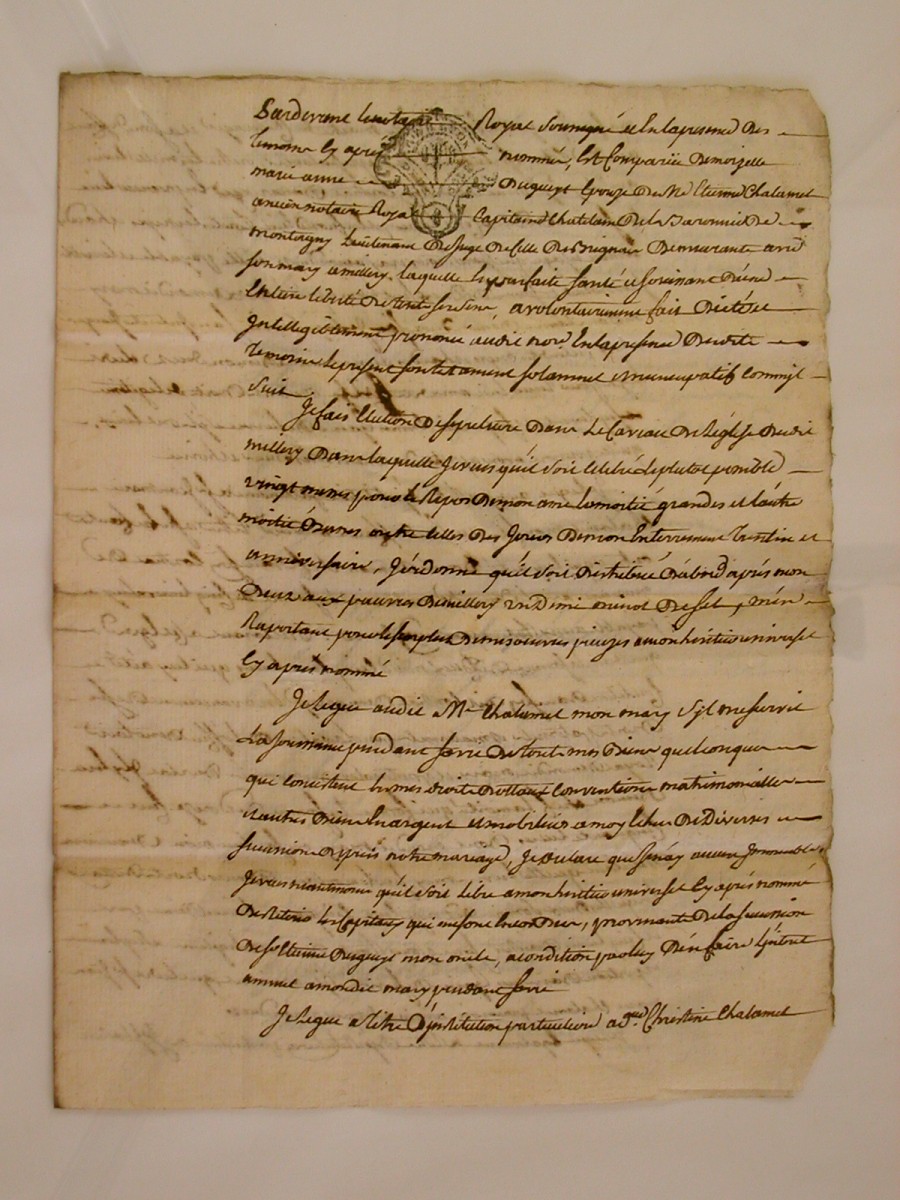 Pardevant le notaire Royal soussigné et En la presence Des
temoins Cy apres nommés, Est Comparüe Demoizelle
marie anne Duguyt Epouze De Me Etienne Chalamel
ancien notaire Royal Capitaine Chatelain De la Baronnie De
montagny Lieutenant De juge De Celle De Brignais Demeurante avec
son mary a millery, laquelle En parfaite santé et jouissant D'une
Entiere liberté De tout ses sens, a volontairement fait Dicté et
Intelligiblement prononcé audit nore. En la presence Desdits
temoins le present son testament solamnel et nuncupatif Comm'il
suit
Je fais Election De sepulture Dans Le Caveau De L'église Dudit
millery Dans laquelle Je veus qu'il soit Celebré le plutot possible
vingt messes pour le Repos De mon ame la moitié grandes et L'autre
moitié basses outre Celles Des Jours De mon Enterrement trentin et
anniversaire, J'ordonne qu'il soit Distribué D'abord apres mon
Deces aux pauvres De millery un Demi minot De sel, m'en
Raportant pour le surplus De mes oeuvres pieuzes a mon héritier universel
Cy apres nommé
Je Legue audit Me Chalamel mon mary s'yl me survit
La Jouissance pendant sa vie De tout mes Biens quelconques
qui Consistent En mes droits Dottaux Convention matrimonialle
et autres Biens En argent et mobiliers a moy Echus De Diverses
succession Depuis notre mariage, Je Declare que Je n'ay aucuns Immeubles,
Je veus neantmoins qu'il soit Libre a mon héritier universel Cy apres nommé
De Retirer Les Capitaux qui me sont Encor Dus, provenant De la succession
De sr Etienne Duguyt mon oncle, a condition par luy D'en faire L'interet
annuel a mondit mary pendant sa vie
Je Legue a titre D'institution particuliere a Christine Chalamel